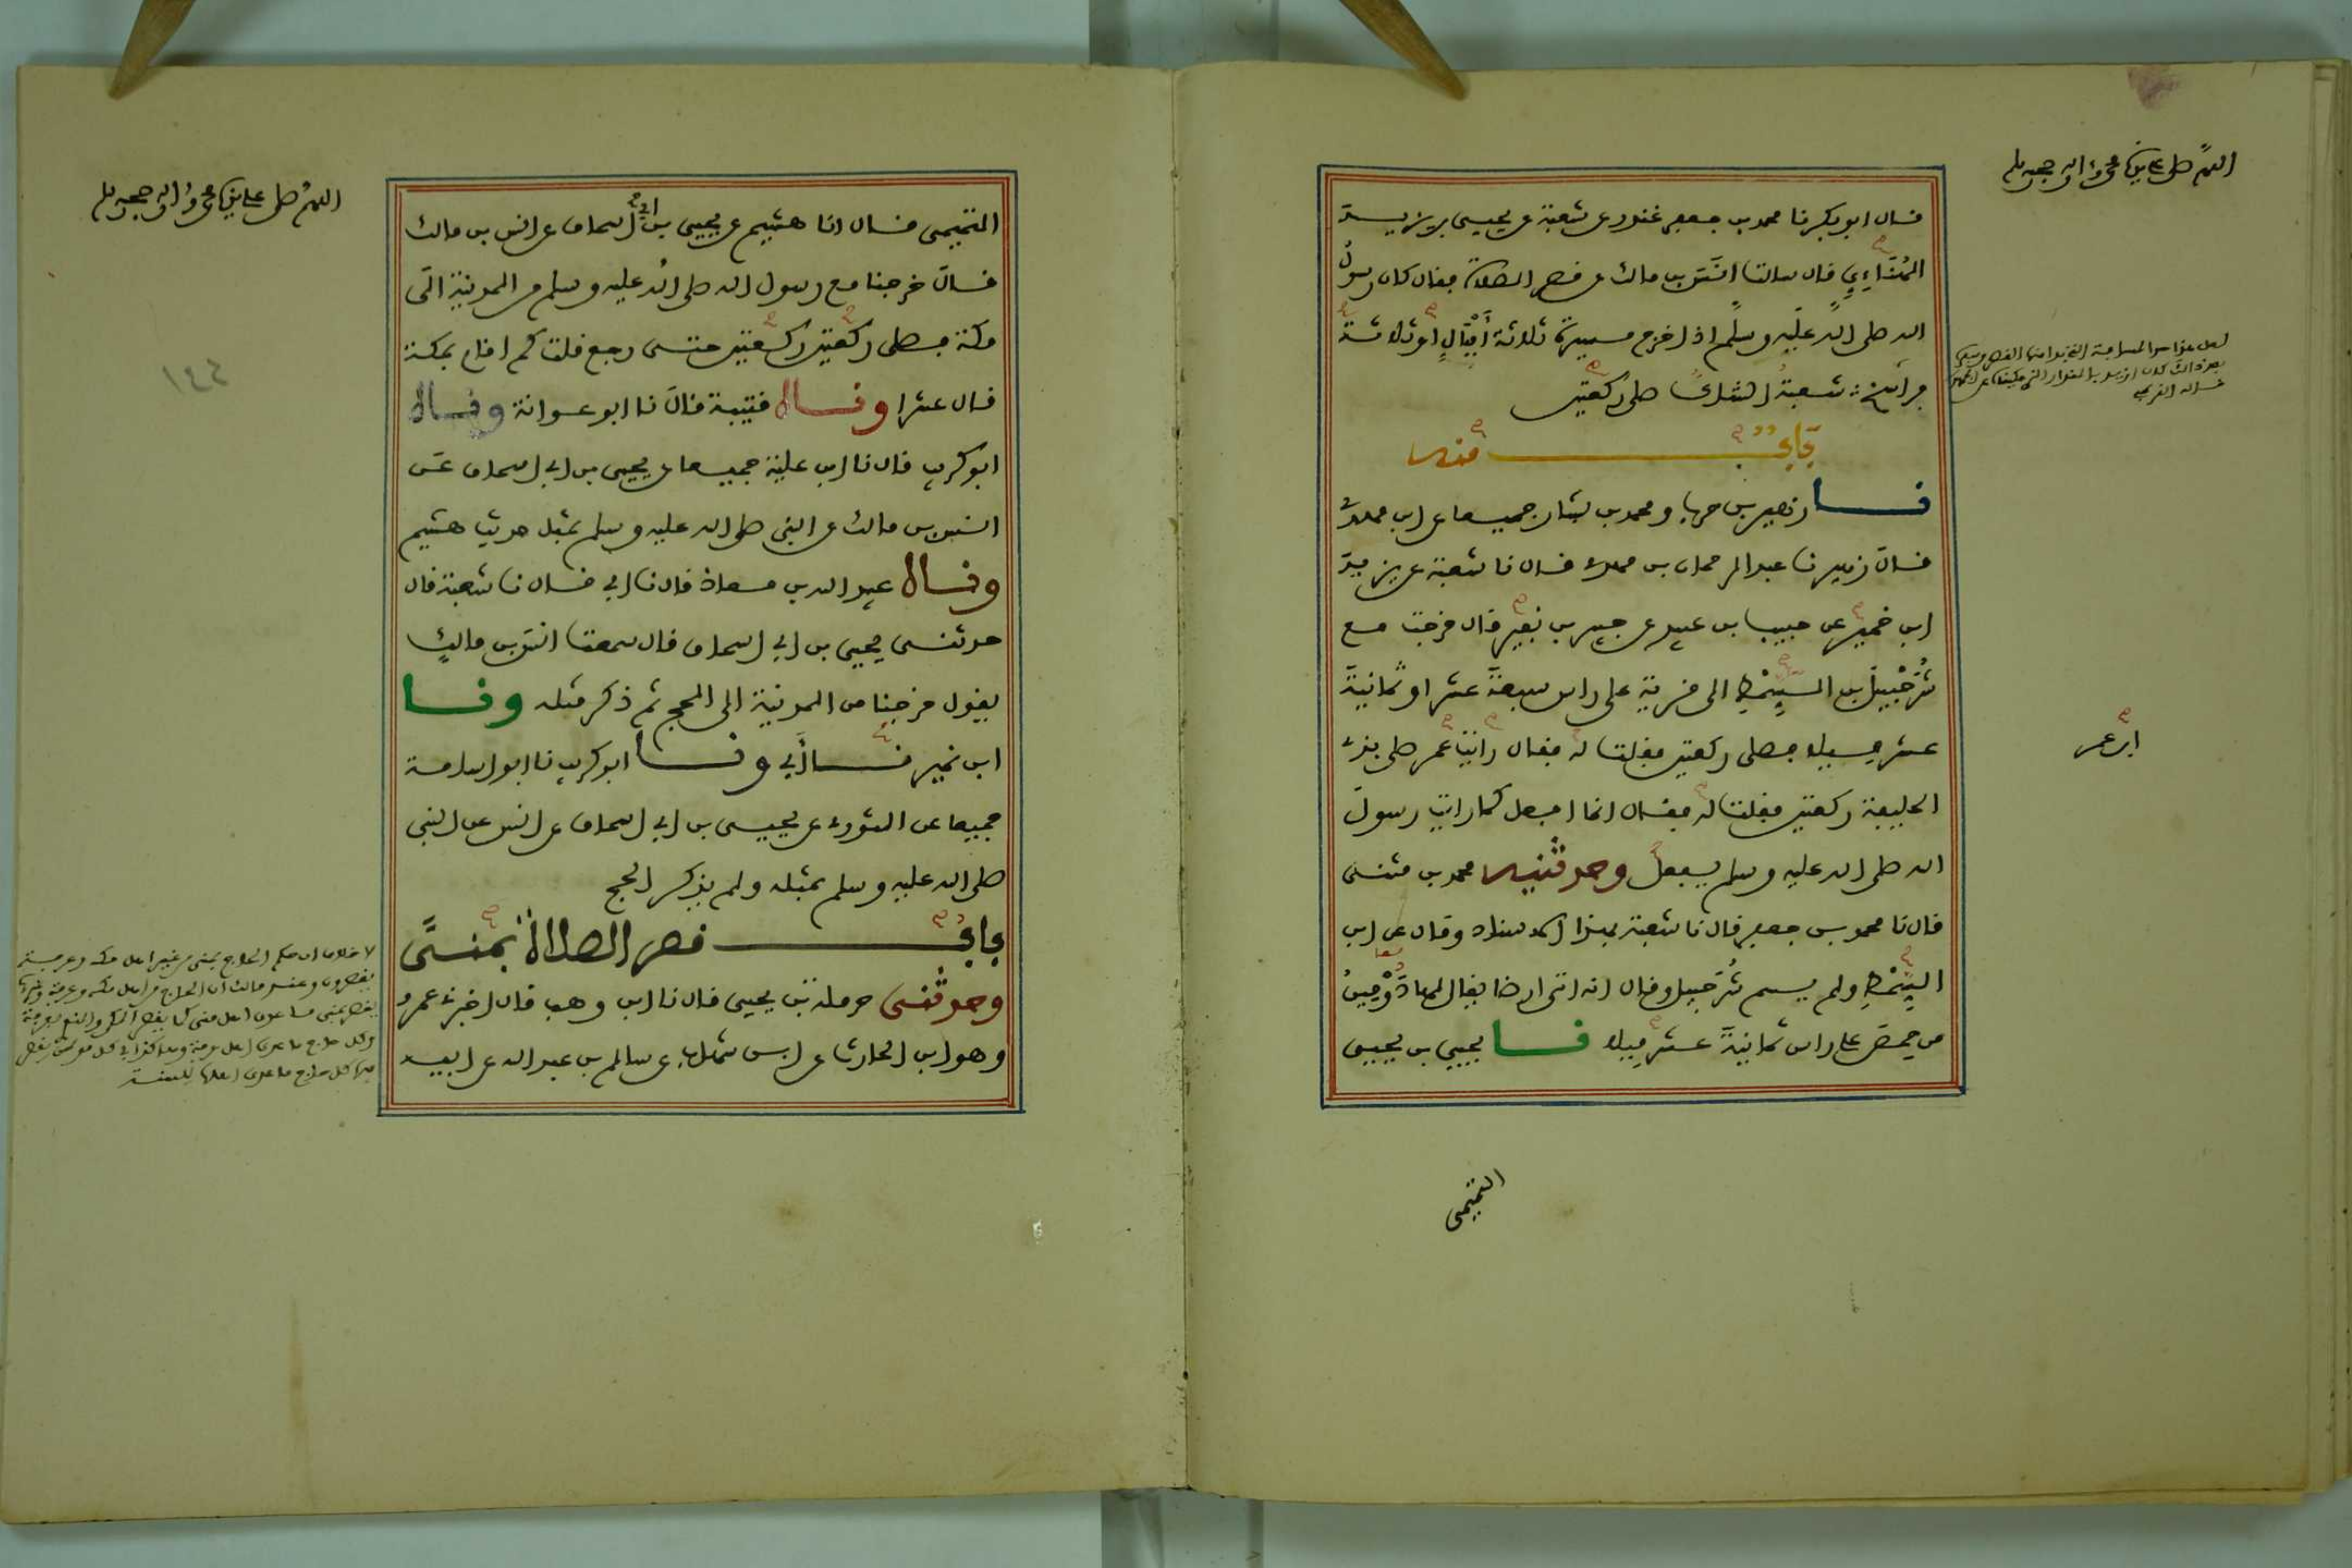 اللهم صل على سيدنا محمد وءاله وصحبه وسلم
قال ابو بكر نا محمد بن جعفر غندر عن شعبة عن يحيى بن يزيد
الهُنَاءِيِ قال سالت انَسَ بن مالك عن قصر الصلاة فقال كان رسولُ
الله صلى اللهُ عليه وسلم اذا خرج مسيرة ثلاثة أَمْيَالٍ او ثلاثة
فراسخ شعبةُ الشاك صلى ركعتين
لعل هذا من المسافة التي يبدا منها القصر
بَابٌ منه
نا زهير بن حرب ومحمد بن بشار جميعا عن ابن مهدي
قال زهير نا عبد الرحمان بن مهدي قال نا شعبة عن يزيد
ابن خمير عن حبيب بن عبيد عن جبير بن نفير قال خرجت مع
شُرَحْبِيل بن السِمْطِ الى قرية على راس سبعةَ عشر او ثمانيةَ
عشر ميلا فصلى ركعتين فقلت له فقال رايت عمر صلى بذي
ابن عمر
الحليفة ركعتين فقلت له فقال انما افعل كما رايت رسول
الله صلى الله عليه وسلم يفعل وحدثنيه محمد بن مثنى
قال نا محمد بن جعفر قال نا شعبة بهذا الاسناد وقال عن ابن
السِمْطِ ولم يسم شُرَحبيل وقال انه اتى ارضا يقال لها دَوْمِينُ
من حِمصَ على راس ثمانيةَ عشر ميلا نا يحيى بن يحيى
التميمي
اللهم صل على سيدنا محمد وءاله وصحبه وسلم
التميمي قال انا هشيم عن يحيى بن ابي اسحاق عن انس بن مالك
قال خرجنا مع رسول الله صلى الله عليه وسلم من المدينة الى
مكة فصلى ركعتين ركعتين حتى رجع قلت كم اقام بمكة
١٤٤
قال عشرا وقال قتيبة قال نا ابو عوانة وقال
ابو كريب قال نا ابن علية جميعا عن يحيى بن ابي اسحاق عن
انس بن مالك عن النبي صلى الله عليه وسلم بمثل حديث هشيم
وقال عبيد الله بن معاذ قال نا ابي قال نا شعبة قال
حدثني يحيى بن ابي اسحاق قال سمعت انس بن مالكٍ
يقول خرجنا من المدينة الى الحج ثم ذكر مثله ونا
ابن نمير نا أبي ونا ابو كريب نا ابو اسامة
جميعا عن الثوري عن يحيى بن ابي اسحاق عن انس عن النبي
صلى الله عليه وسلم بمثله ولم يذكر الحج
بابُ قصر الصلاة بمنىً
وحدثني حرملة بن يحيى قال نا ابن وهب قال اخبرني عمرو
وهو ابن الحارث عن ابن شهاب عن سالم بن عبد الله عن ابيه
لا خلاف ان حكم الحاج بمنى من غير اهل مكة وعرفة